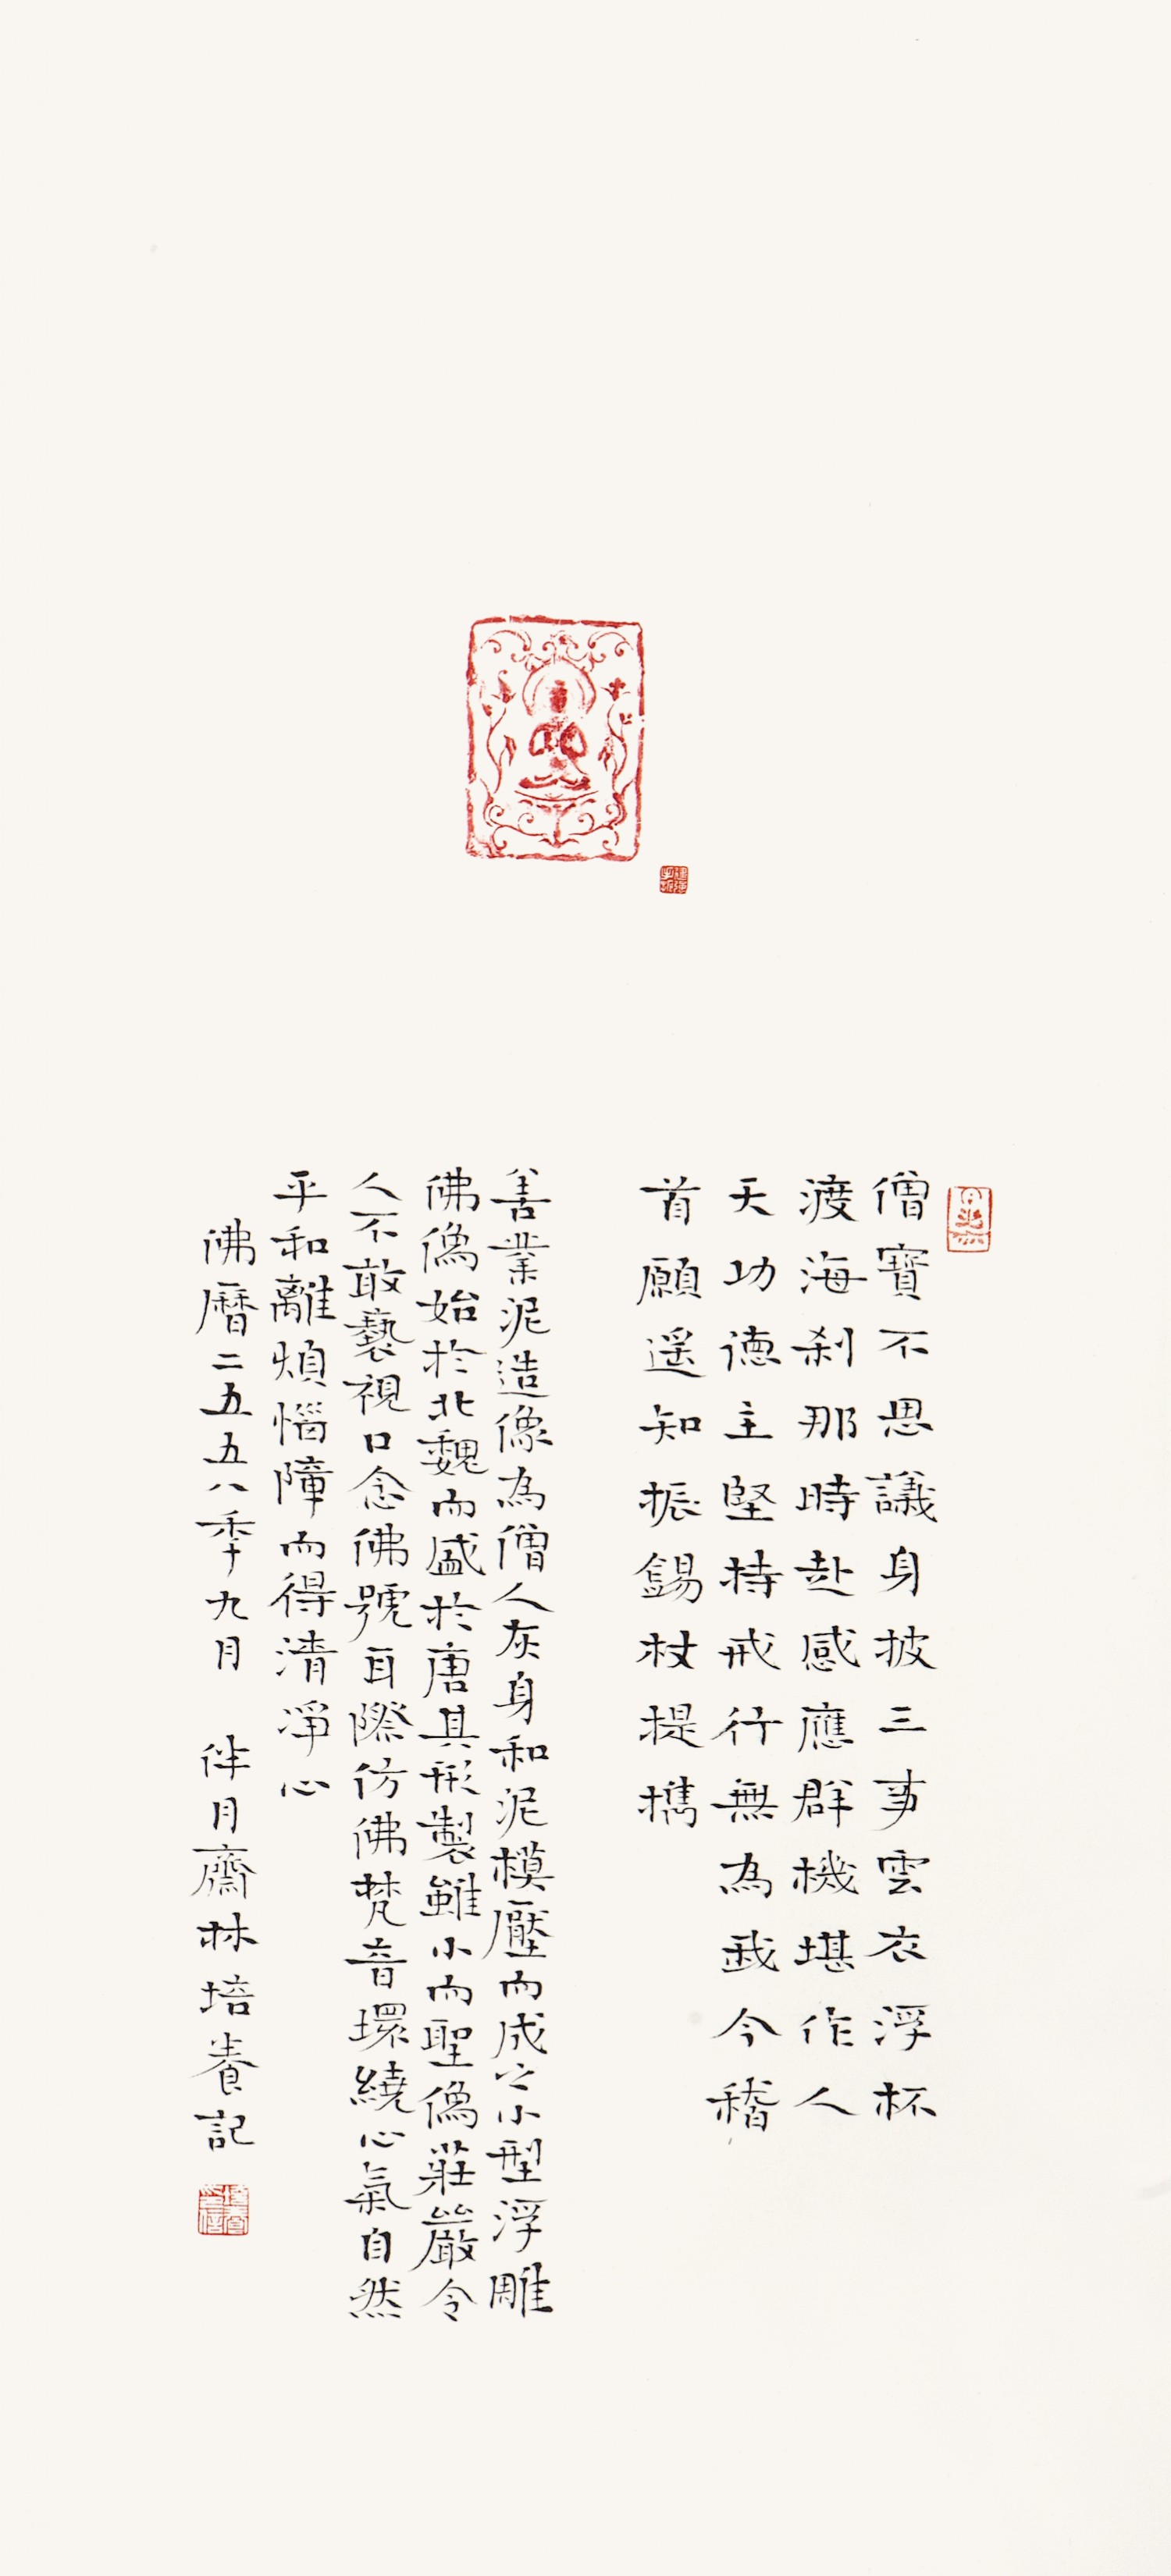 僧寶不思議身披三事雲衣浮杯
渡海刹那時赴感應群機堪作人
天功德主堅持戒行無為我今稽
首願遥知振錫杖提擕
善業泥造像為僧人灰身和泥模壓而成之小型浮雕
佛像始於北魏而盛於唐其形製雖小而聖像莊嚴令
人不敢褻視口念佛號耳際仿佛梵音環繞心氣自然
平和離煩惱障而得清凈心
佛曆二五五八季九月 伴月齋林培養記